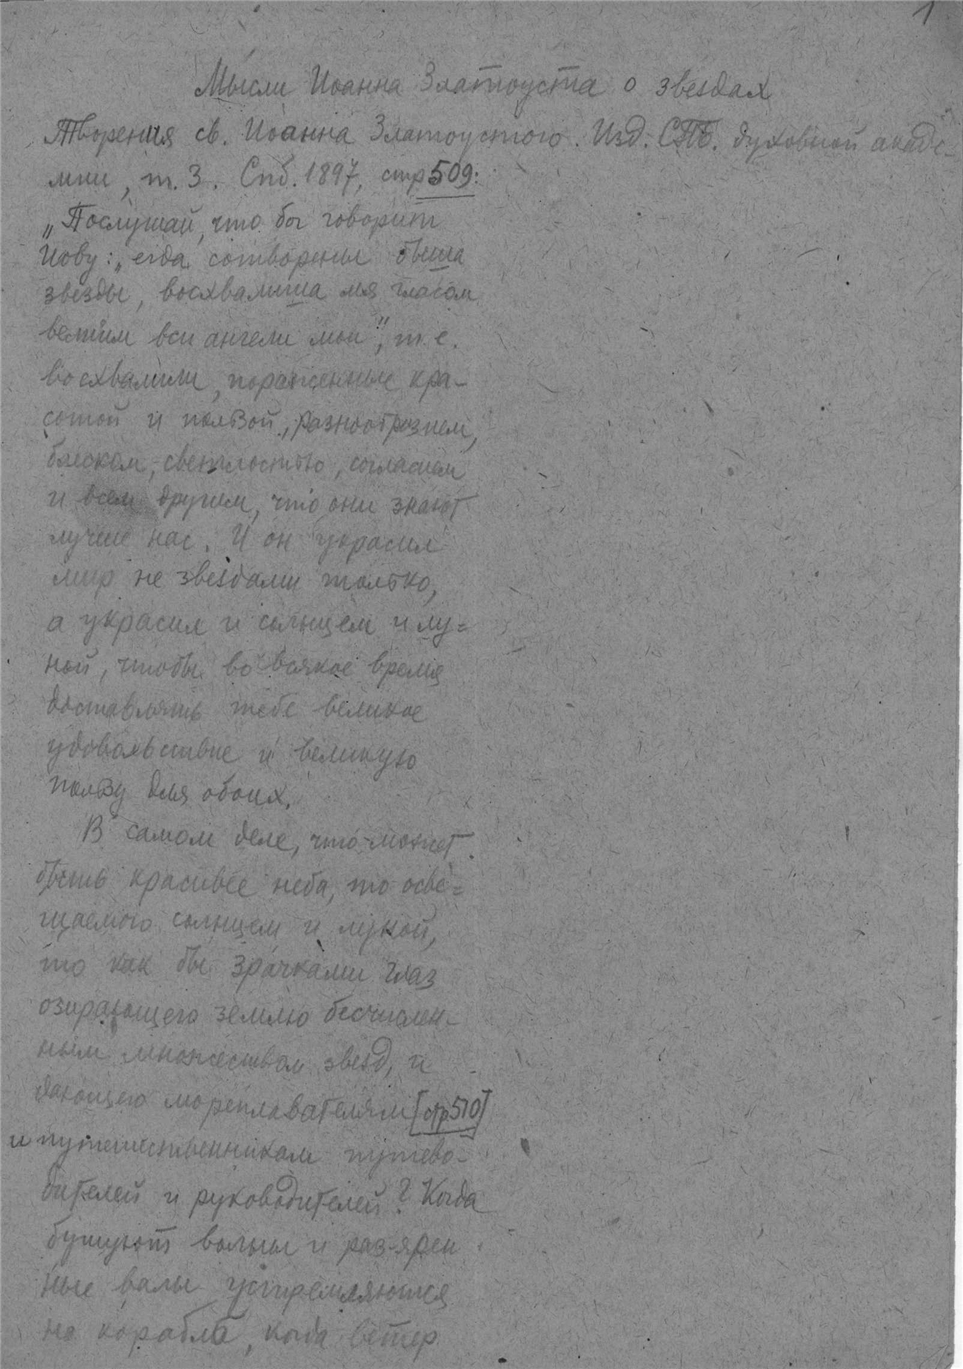 1
Мысли Иоанна Златоуста о звездах
Творения св. Иоанна Златоустого. Изд. СПБ. духовной акаде-
мии, т. 3. Спб. 1897, стр 509:
„Послушай, что бог говорит
Иову: „егда сотворены быша
звезды, восхвалиша мя гласом
велиим вси ангели мои", т. е.
восхвалили, пораженные кра-
сотой и пользой, разнообразием,
блеском, светлостью, согласием
и всем другим, что они знают
лучше нас. И он украсил
мир не звездами только,
а украсил и солнцем и лу-
ной, чтобы во всякое время
доставлять тебе великое
удовольствие и великую
пользу для обоих.
В самом деле, что может
быть красивее неба, то осве-
щаемого солнцем и луной,
то как бы зрачками глаз
озирающего землю бесчислен-
ным множеством звезд, и
дающего мореплавателям [стр 510]
и путешественникам путево-
дителей и руководителей? Когда
бушуют волны и разярен
ные валы устремляются
на корабль, когда ветер